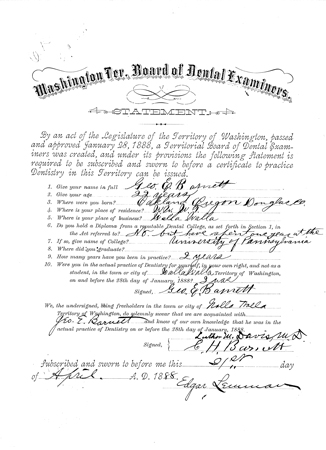 Washington Ter. Board of Dental Examiners.
STATEMENT.
By an act of the Legislature of the Territory of Washington, passed
and approved January 28, 1888, a Territorial Board of Dental Exam-
iners was created, and under its provisions the following Statement is
required to be subscribed and sworn to before a certificate to practice
Dentistry in this Territory can be issued.
1. Give your name in full Geo. E. Barnett
2. Give your age 27 years
3. Where were you born? Oakland Oregon Douglas Co
4. Where is your place of residence? W. W. W. T.
5. Where is your place of business? Walla Walla
6. Do you hold a Diploma from a reputable Dental College, as set forth in Section 1, in
the Act referred to? No. but have spent one year at the
7. If so, give name of College? University of Pennsylvania
8. Where did you graduate?
9. How many years have you been in practice? 2 years
10. Were you in the actual practice of Dentistry for yourself, in your own right, and not as
student, in the town or city of Walla Walla, Territory of Washington,
on and before the 28th day of January, 1888? I was
Signed, Geo. E. Barnett
We, the undersigned, being freeholders in the town or city of Walla Walla
Territory of Washington, do solemnly swear that we are acquainted with
Geo. E. Barnett and know of our own knowledge that he was in the
actual practice of Dentistry on or before the 28th of January, 1888.
Davis, M.D.
Signed, E. H. Barnett
Subscribed and sworn to before me this 21st day
of April. A. D. 1888.
Edgar Lemman